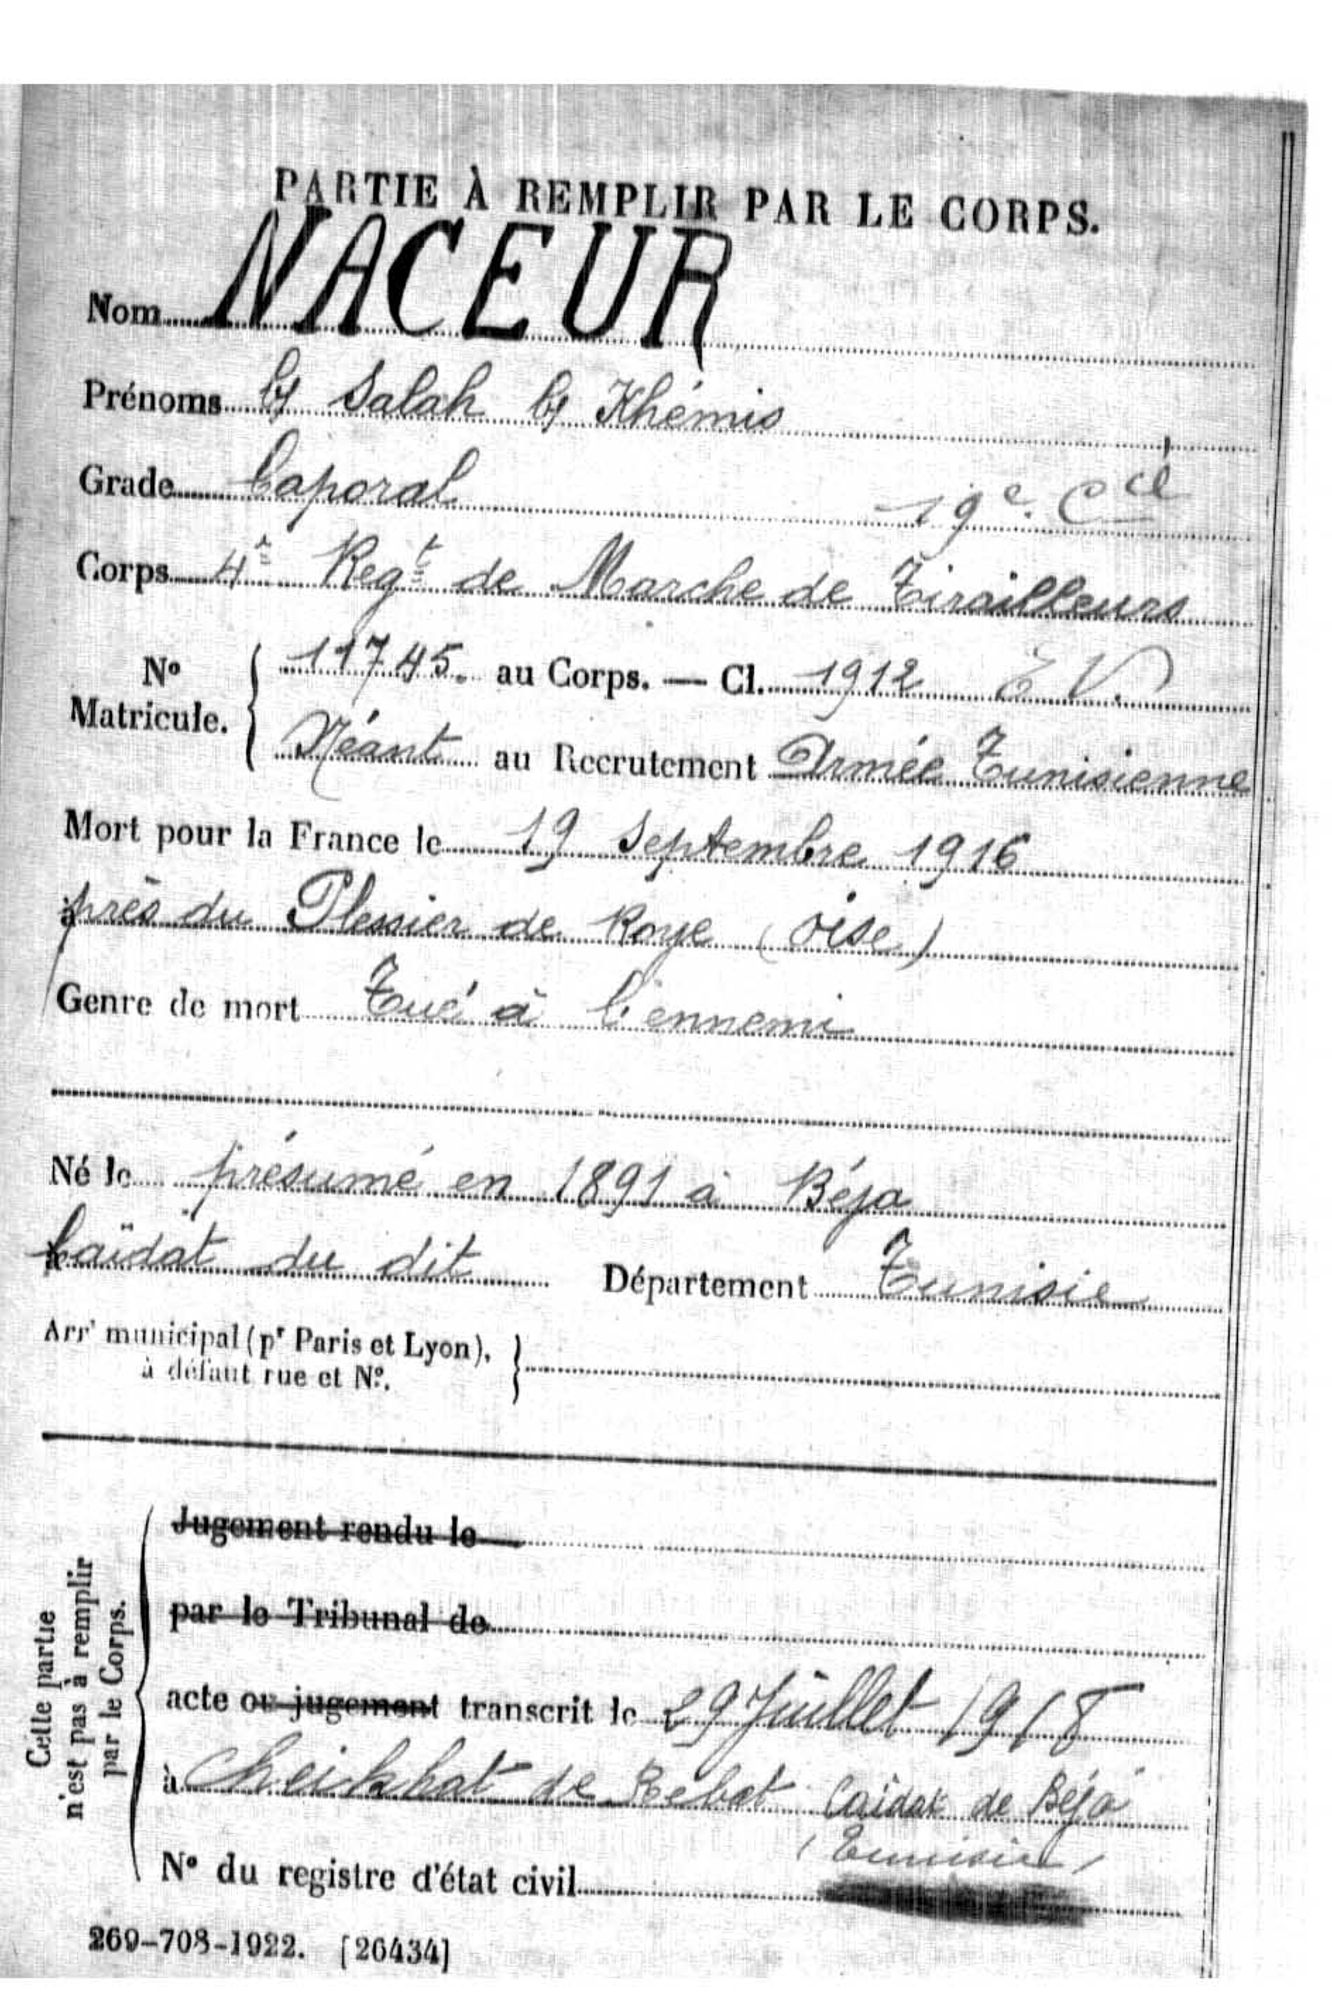 PARTIE À REMPLIR PAR LE CORPS.
Nom NACEUR
Prénoms bn Salah bn Khémis
Grade Caporal 19e Cie
Corps 4e Regt de Marche de Tirailleurs
No Matricule. { 11745. au Corps. — Cl. 1912 E V.
Néant au Recrutement Armée Tunisienne
Mort pour la France le 19 Septembre 1916
à près du Plessier de Roye (Oise)
Genre de mort Tué à l'ennemi
Né le présumé en 1891 à Béja
à Caïdat du dit Département Tunisie
Arrt municipal (pr Paris et Lyon), à défaut rue et No. }
Cette partie n'est pas à remplir par le Corps.
Jugement rendu le
par le Tribunal de
acte ou jugement transcrit le 29 Juillet 1918
à Cheikhat de Rebat Caïdat de Béja
(Tunisie)
No du registre d'état civil
269-708-1922. [26434]